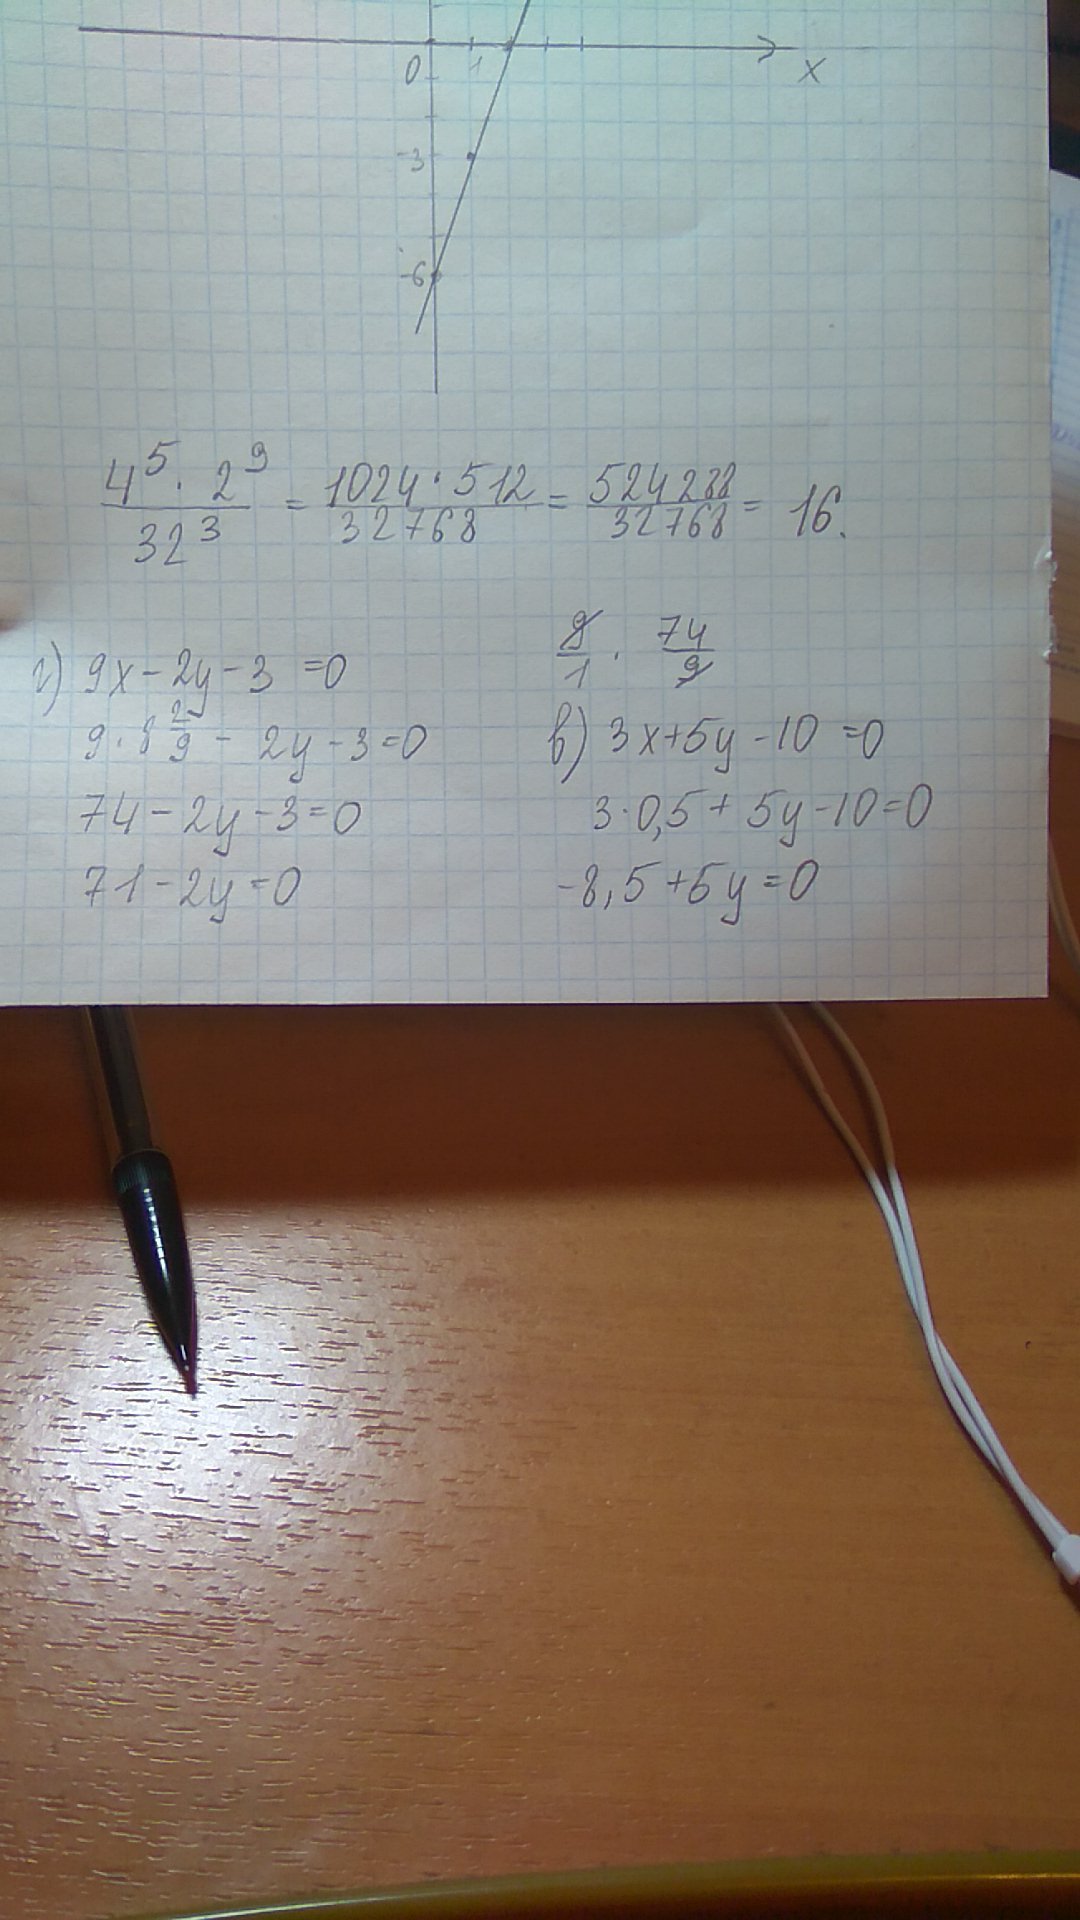 0 1 x
-3
-6
4⁵ · 2⁹ / 32³ = 1024 · 512 / 32768 = 524288 / 32768 = 16.
9/1 · 74/9
г) 9x - 2y - 3 = 0
9 · 8 2/9 - 2y - 3 = 0
74 - 2y - 3 = 0
71 - 2y = 0
в) 3x + 5y - 10 = 0
3 · 0,5 + 5y - 10 = 0
-8,5 + 5y = 0